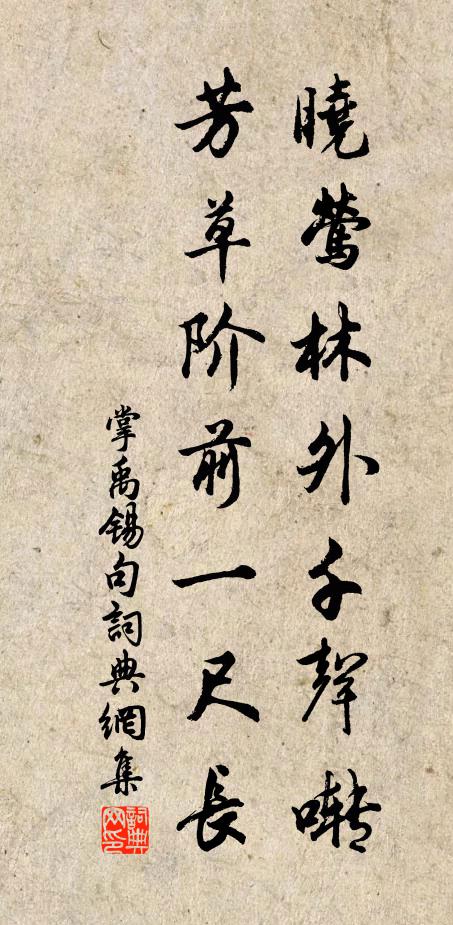 曉鶯林外千聲囀
芳草阶前一尺長
掌禹锡句詞典網集
詞典網印